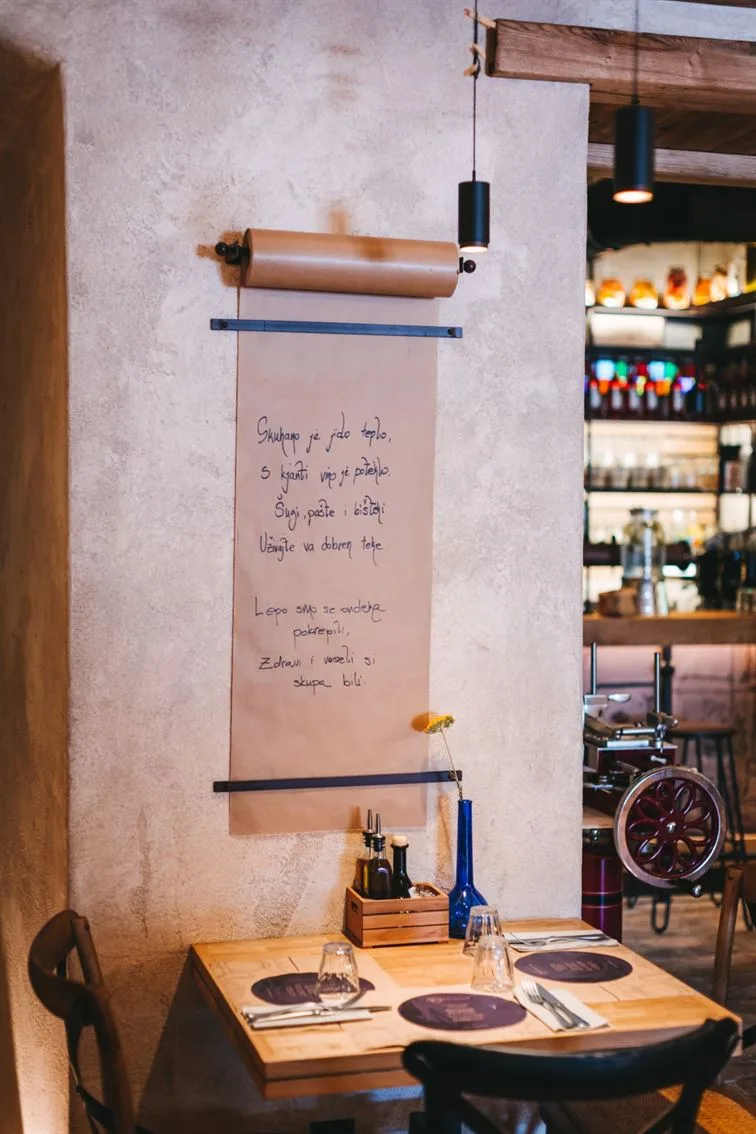 Skuhano je jido teplo,
S kjanti vino je poteklo.
Šugi, pašte i bišteki
Uživajte va dobren teke
Lepo smo se ondeka
pokrepili,
Zdravi i veseli si
skupa bili.